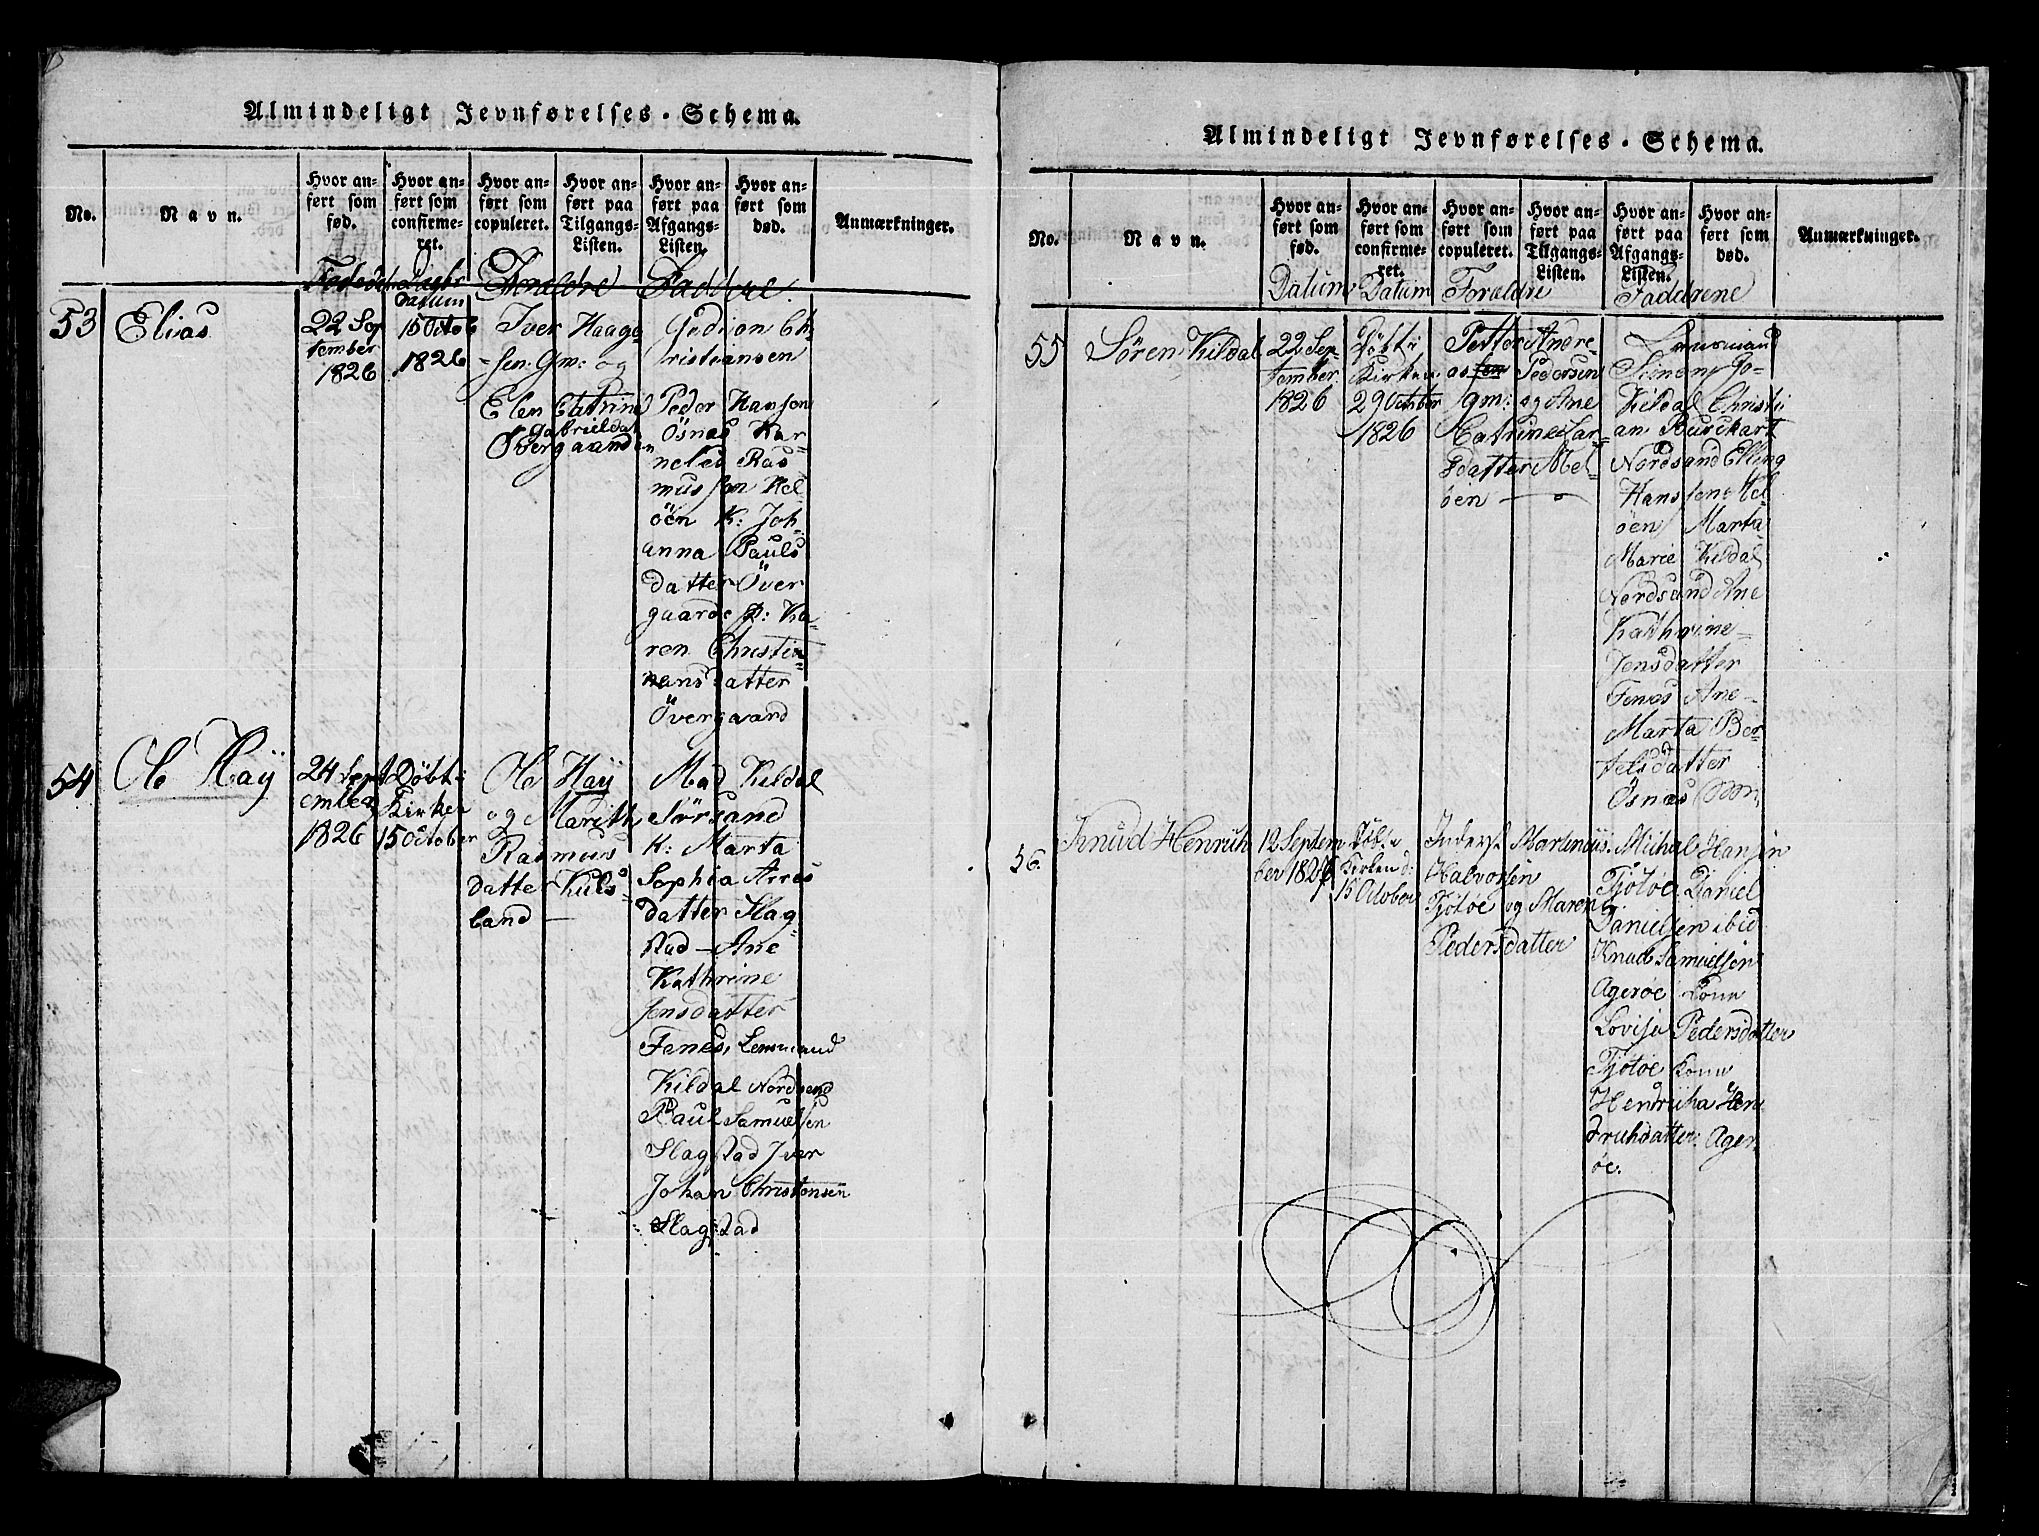 Almindeligt Jevnførelses-Schema.
No.
Navn.
Hvor an-
ført som
fød.
Hvor an-
ført som
confirme-
ret.
Hvor an-
ført som
copuleret.
Hvor an-
ført paa
Tilgangs-
Listen.
Hvor an-
ført paa
Afgangs-
Listen.
Hvor an-
ført som
død.
Anmærkninger.
Datum
Foraldre
Faddere
53
Elias
22 Sep
tember
1826
15 Octob
1826
Iver Haage
-sen Gm: og
Elen Catrine
Gabrieldat
Övergaarden
Gedion Ch
ristiansen
Peder Hansen
Ösnas Kar-
neles Ras-
mussen Mel-
öen K: Joh-
anna Pauls
datter Över
gaarde p: Ka-
ren Christia-
nans datter
Övergaard
54
Ole Haÿ
24 Sept
ember
1826
Döbt i
Kirken
15 October
Ole Haÿ
og Marith
Rasmus
datter Kuls-
land
Mad Kildal
Sörsand
K: Marta
Sophia Arres
datter Slag-
stad - Ane
Kathrine
Jensdatter
Fenes, Lensmand
Kildal Nordsand
Paul Samuelsen
Slagstad Iver
Johan Christensen
Slagstad
Almindeligt Jevnførelses-Schema.
No.
Navn.
Hvor an-
ført som
fød.
Hvor an-
ført som
confirme-
ret.
Hvor an-
ført som
copuleret.
Hvor an-
ført paa
Tilgangs-
Listen.
Hvor an-
ført paa
Afgangs-
Listen.
Hvor an-
ført som
død.
Anmærkninger.
Datum
Datum
Forældre
Faddrene
55
Sören Kildal
22 Sep-
tember
1826
Döbt i
Kirken
29 October
1826
Petter Andre-
as Pedersen
gm: og Ane
Catrine Lar-
sdatter Mel-
öen
Lensmand
Simon Po-
Kildal Christi
an Burchart
Nordsand Elling
Hanssen Mel-
öen Marta
Marie Kildal
Nordsand Ane
Kathrine
Jensdatter
Fenes Ane
Marta Ber-
telsdatter
Ösnas
56.
Knud Henrich
12 Septem
ber 1826
Döbt i
Kirken d:
15 October
Inderst Martinus
Halvorsen
Tjötöe og Maren
Pedersdatter
Michal Hansen
Tjötöe Daniel
Danielsen ibid
Knud Samuelsen
Ageröe Kone
Lovisa Pedersdatter
Tjötöe Kone
Hendricha Hen
drichdatter Ager
öe.